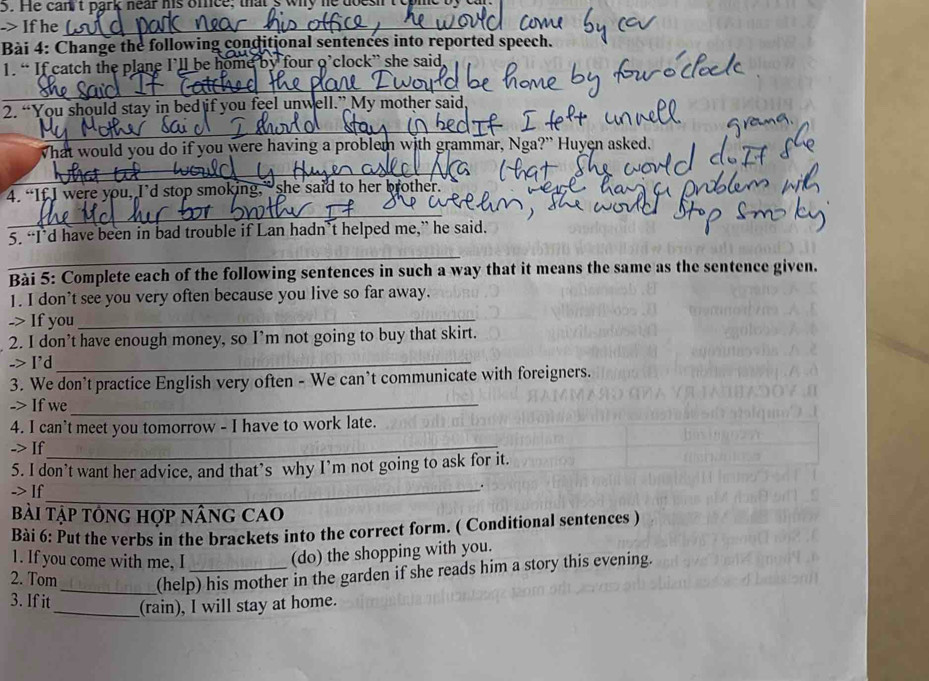 5. He can't park near his office; that's why he doesn't come by car.
-> If he could park near his office, he would come by car
Bài 4: Change the following conditional sentences into reported speech.
caught
1. " If catch the plane I'll be home by four o'clock" she said.
She said If catched the plane I would be home by four o'clock
2. "You should stay in bed if you feel unwell." My mother said.
My Mother said I should stay in bed If I felt unwell
What would you do if you were having a problem with grammar, Nga?" Huyen asked.
grama.
Huyen asked Nga that she would do If she
were having problem with
4. "If I were you, I'd stop smoking," she said to her brother.
her brother If she were him, she would stop smoking
5. "I'd have been in bad trouble if Lan hadn't helped me," he said.
Bài 5: Complete each of the following sentences in such a way that it means the same as the sentence given.
1. I don't see you very often because you live so far away.
-> If you
2. I don't have enough money, so I'm not going to buy that skirt.
-> I'd
3. We don't practice English very often - We can't communicate with foreigners.
-> If we
4. I can't meet you tomorrow - I have to work late.
-> If
5. I don't want her advice, and that's why I'm not going to ask for it.
-> If .
BÀI TẬP TỔNG HỢP NÂNG CAO
Bài 6: Put the verbs in the brackets into the correct form. ( Conditional sentences )
1. If you come with me, I ________ (do) the shopping with you.
2. Tom ________(help) his mother in the garden if she reads him a story this evening.
3. If it ________(rain), I will stay at home.